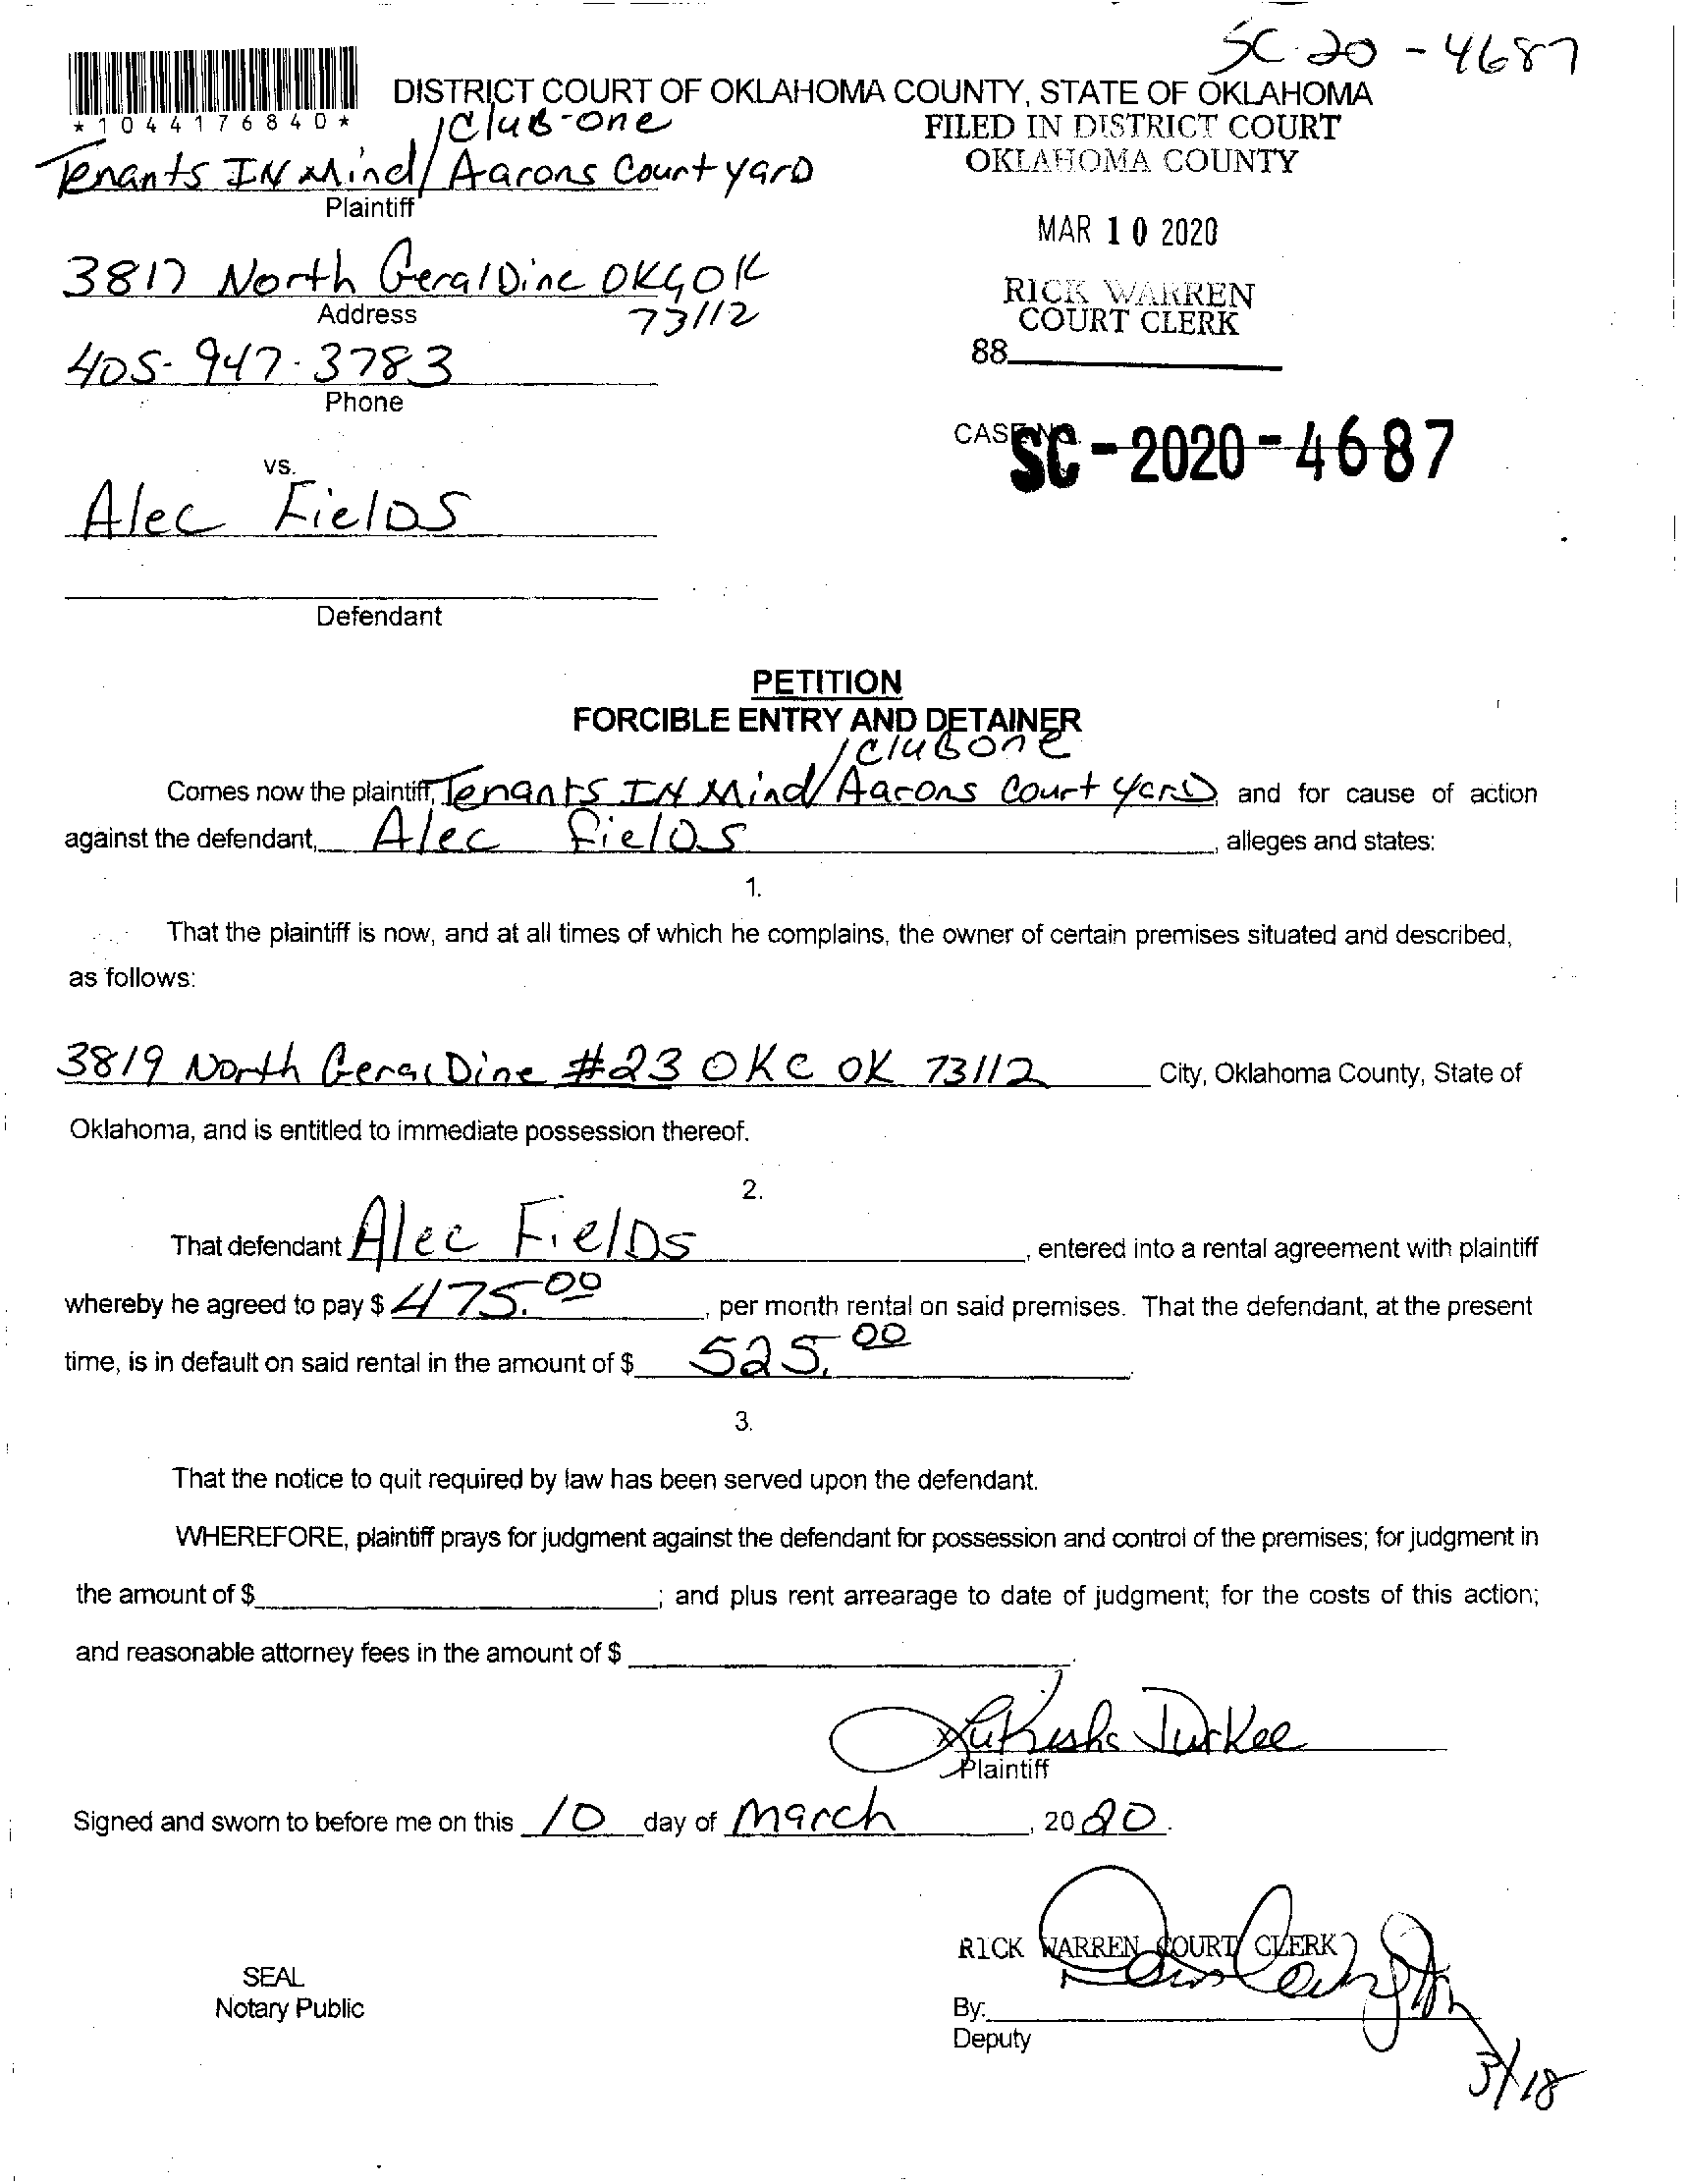 SC-20-4687
DISTRICT COURT OF OKLAHOMA COUNTY, STATE OF OKLAHOMA
*1044176840*
/Club-one
FILED IN DISTRICT COURT
OKLAHOMA COUNTY
Tenants IN Mind/Aarons Courtyard
Plaintiff
MAR 10 2020
3817 North GeralDine OKC OK
73112
Address
RICK WARREN
COURT CLERK
405-947-3783
Phone
88
CASE NO.
SC-2020-4687
vs.
Alec Fields
Defendant
PETITION
FORCIBLE ENTRY AND DETAINER
/Club one
Comes now the plaintiff, Tenants IN Mind/Aarons Court yard, and for cause of action
against the defendant, Alec Fields, alleges and states:
1.
That the plaintiff is now, and at all times of which he complains, the owner of certain premises situated and described,
as follows:
3819 North GeralDine #23 OKC OK 73112 City, Oklahoma County, State of
Oklahoma, and is entitled to immediate possession thereof.
2.
That defendant Alec Fields, entered into a rental agreement with plaintiff
whereby he agreed to pay $ 475.00, per month rental on said premises. That the defendant, at the present
time, is in default on said rental in the amount of $ 525.00.
3.
That the notice to quit required by law has been served upon the defendant.
WHEREFORE, plaintiff prays for judgment against the defendant for possession and control of the premises; for judgment in
the amount of $ ; and plus rent arrearage to date of judgment; for the costs of this action;
and reasonable attorney fees in the amount of $ .
Plaintiff
Signed and sworn to before me on this 10 day of March, 2020.
RICK WARREN COURT CLERK
SEAL
Notary Public
By:
Deputy
3/18